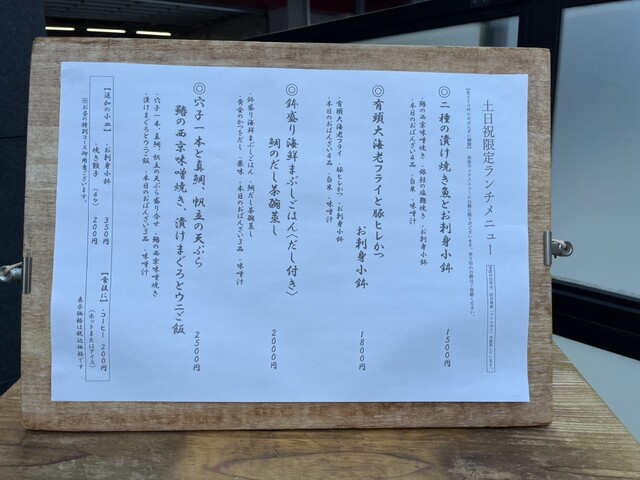 土日祝限定ランチメニュー
◎二種の漬け焼き魚とお刺身小鉢 1500円
・鰆の西京味噌焼き ・銀鮭の塩麹焼き ・お刺身小鉢
・本日のおばんざい4品 ・白米 ・味噌汁
◎有頭大海老フライと豚ヒレかつ
お刺身小鉢 1800円
・有頭大海老フライ ・豚ヒレかつ ・お刺身小鉢
・本日のおばんざい4品 ・白米 ・味噌汁
◎鉢盛り海鮮まぶしごはん〈だし付き〉
鯛のだし茶碗蒸し 2000円
・鉢盛り海鮮まぶしごはん ・鯛だし茶碗蒸し
・黄金のかつおだし ・薬味 ・本日のおばんざい3品 ・味噌汁
◎穴子一本と真鯛、帆立の天ぷら
鰆の西京味噌焼き、漬けまぐろとウニご飯 2500円
・穴子一本、真鯛、帆立の天ぷら盛り合せ ・鰆の西京味噌焼き
・漬けまぐろとウニご飯 ・本日のおばんざい3品 ・味噌汁
【追加の小皿】 ・お刺身小鉢 350円
・焼き餃子(4ヶ) 200円
【食後に】 ・コーヒー 200円
(ホットまたはアイス)
表示価格は税込価格です